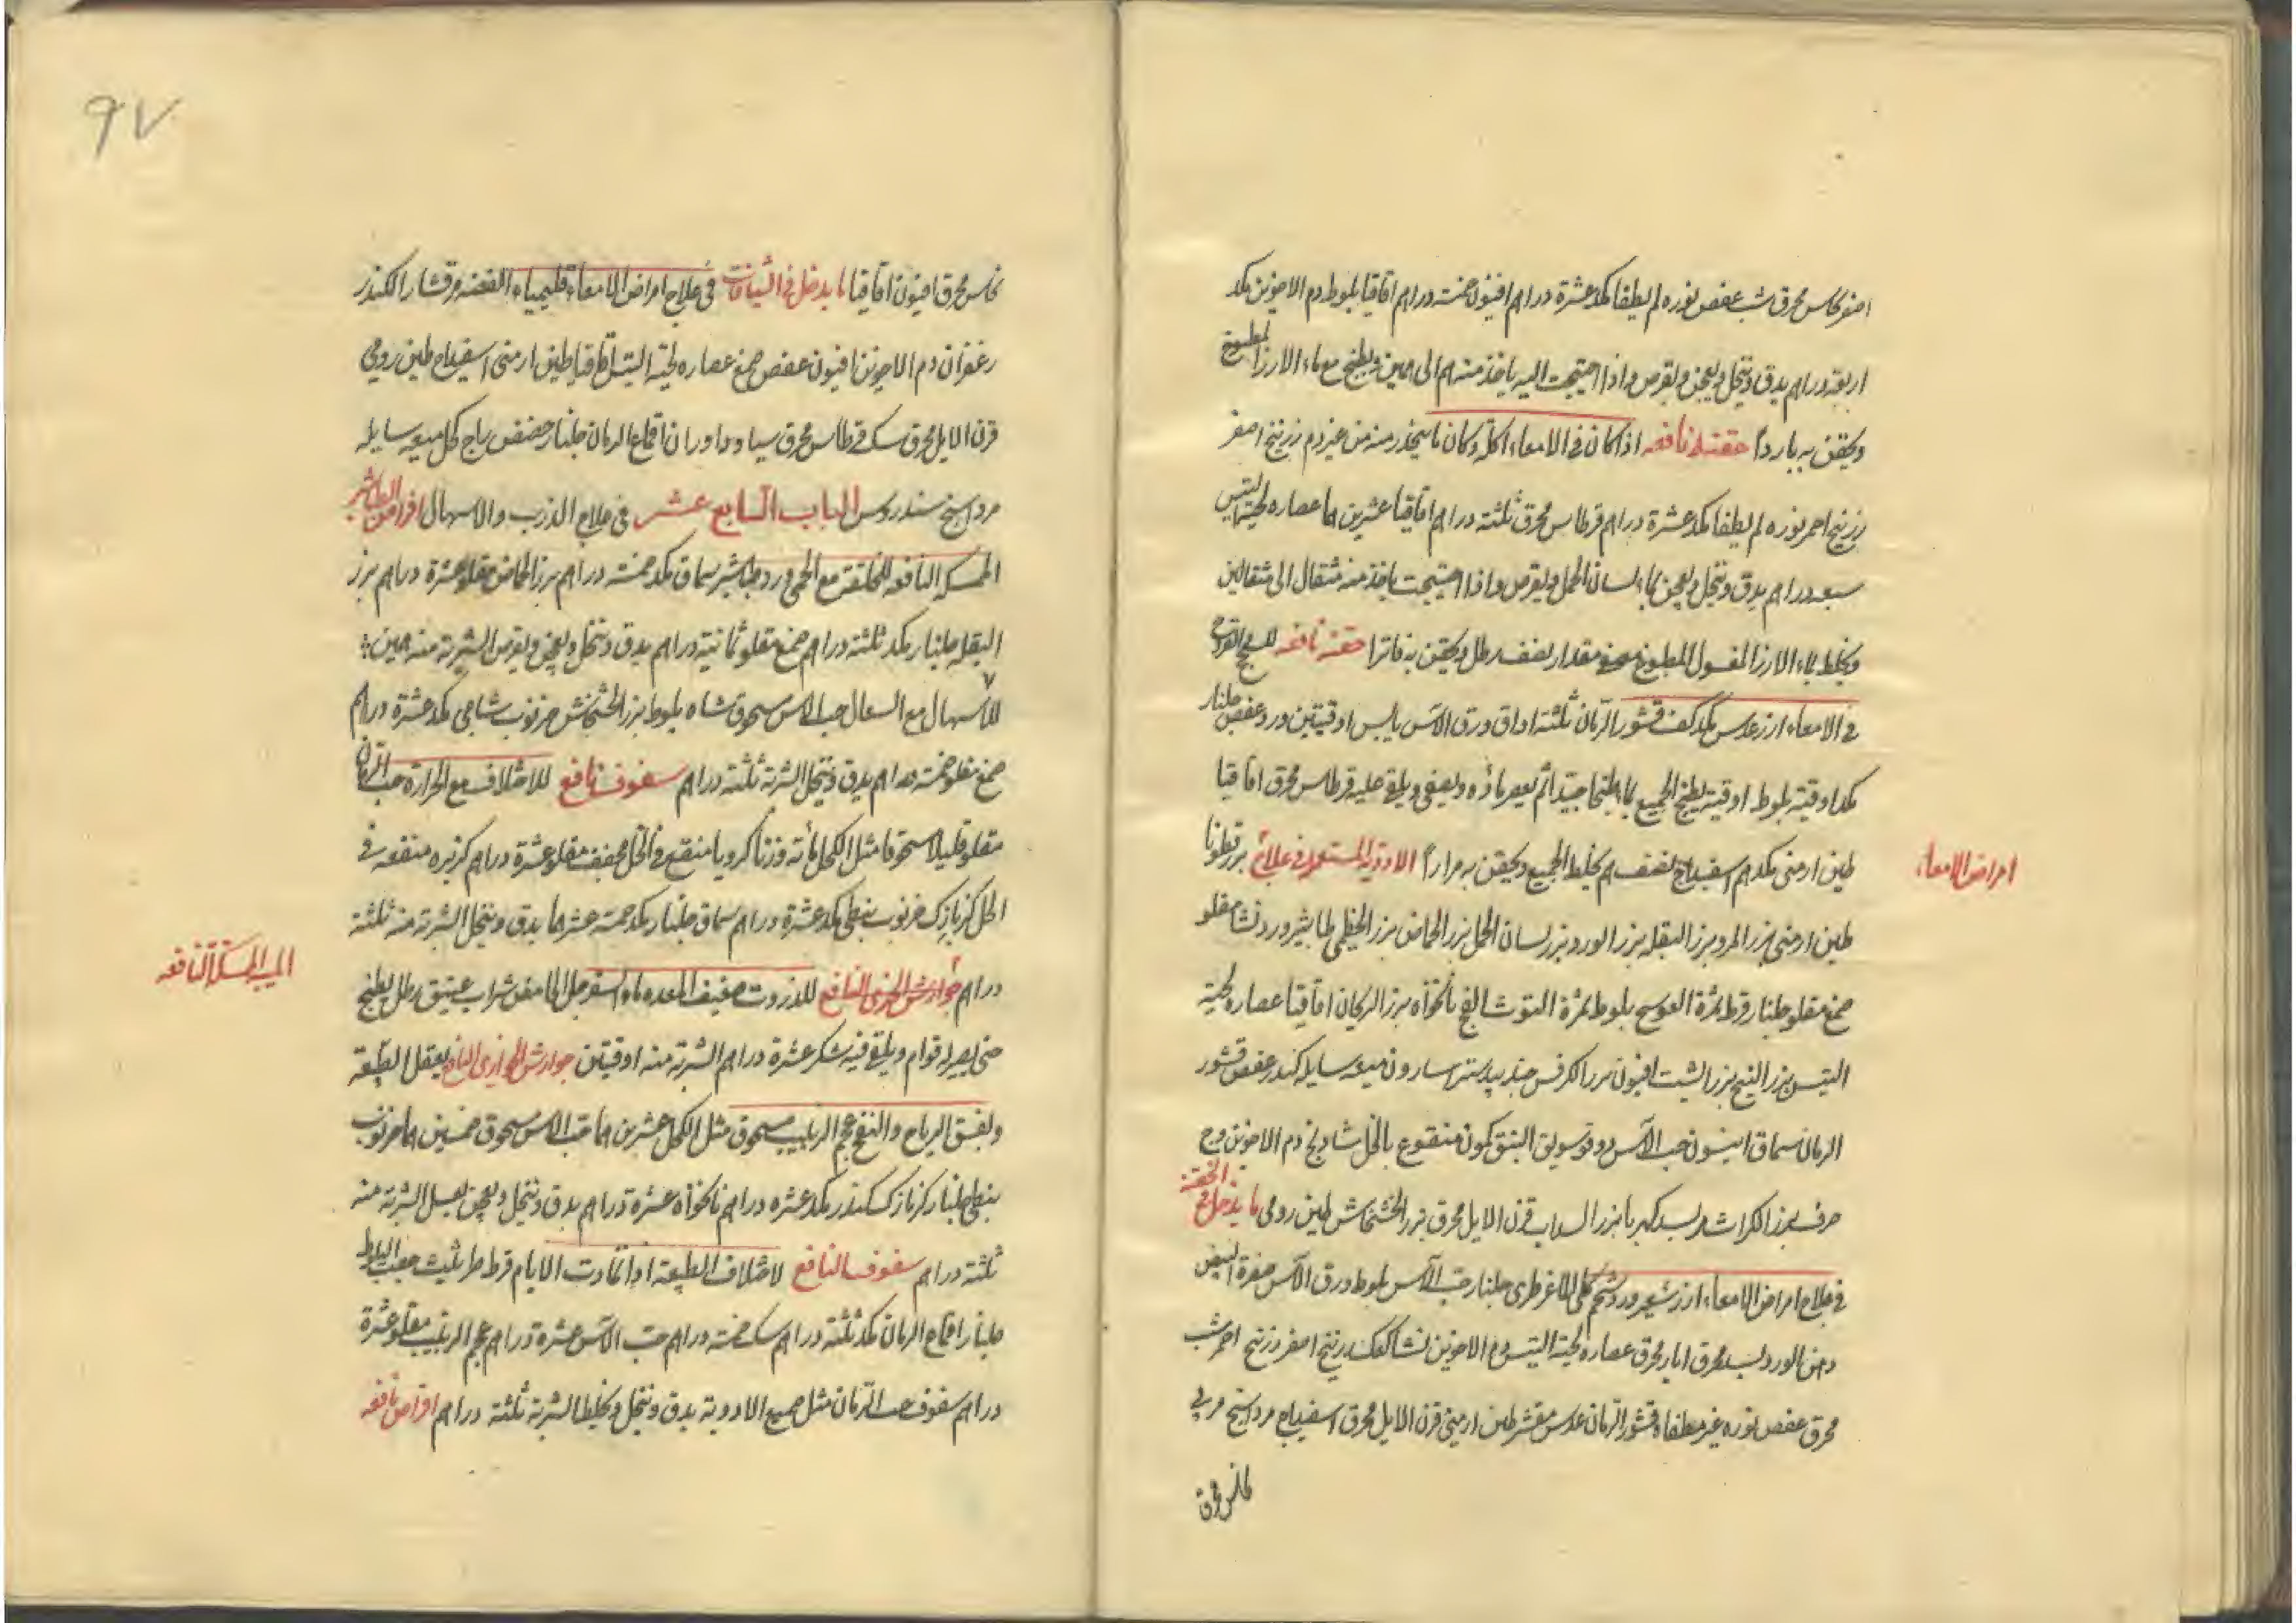 اصفر نحاس محرق شب عفص نوره لم يطفا مكد عشرة دراهم افيون خمسة دراهم اقاقيا بلوط دم الاخوين مكد
اربعة دراهم يدق وينخل ويعجن ويقرص واذا احتيجت اليه ياخذ منه هم الى همين ويطبخ مع ماء الارز المطبوخ
ويحقن به باردا حقنة نافعه اذا كان في الامعاء اكلة وكان ما ينحدر منه من غير دم زرنيخ اصفر
زرنيخ احمر نوره لم يطفا مكد عشرة دراهم قرطاس محرق ثلثة دراهم اقاقيا عشرين هما عصاره لحية التيس
سبعه دراهم يدق وينخل ويعجن بماء لسان الحمل ويقرص واذا احتيجت ياخذ منه مثقال الى مثقالين
ويخلط بماء الارز المغسول المطبوخ مقدار نصف رطل ويحقن به فاترا حقنه نافعه للسحج القروح
في الامعاء ارز عدس مكد كف قشور الرمان ثلثة اواق ورق الآس يابس اوقيتين ورد عفص جلنار
مكد اوقية بلوط اوقية يطبخ الجميع بماء طبخا جيدا ثم يعصر ماؤه ويصفى ويلقى عليه قرطاس محرق اقاقيا
طين ارمنى مكد هم اسفيداج نصف هم يخلط الجميع ويحقن به مرارا الادوية المستعمله في علاج بزرقطونا
امراض الامعاء
طين ارمنى بزر المرو بزر البقله بزر الورد بزر لسان الحمل بزر الحماض بزر الخطمى طباشير ورد نشا مقلو
صمغ مقلو جلنار قرط ثمرة العوسج بلوط ثمرة التوت الفج نانخواه بزر الريحان اقاقيا عصاره لحية
التيس بزر البنج بزر الشبت افيون بزر الكرفس جندبيدستر اسارون ميعه سايله كندر عفص قشور
الرمان سماق انيسون حب الآس دوقو سويق النبق كمون منقوع بالخل شادنج دم الاخوين وج
حرف بزر الكراث بسد كهربا بزر السداب قرن الايل محرق بزر الخشخاش طين رومى ما يدخل في الحقنه
في علاج امراض الامعاء ارز شعير ورد شحم كلى الماعز طرى جلنار حب الآس بلوط ورق الآس صفرة البيض
دهن الورد بسد محرق ابار محرق عصاره لحية التيس دم الاخوين نشا كعك زرنيخ اصفر زرنيخ احمر شب
محرق عفص نوره غير مطفاه قشور الرمان عدس مقشر طين ارمني قرن الايل محرق اسفيداج مرداسنج مربي
نحاس محرق
٩٧
نحاس محرق افيون اقاقيا ما يدخل في الشيافات في علاج امراض الامعاء قليمياء الفضه مر قشار الكندر
زعفران دم الاخوين افيون عفص صمغ عصاره لحية التيس اقاقيا طين ارمنى اسفيداج طين رومي
قرن الايل محرق سك قرطاس محرق اقماع الرمان جلنار حضض زاج كحل ميعه سايله
مرداسنج سندروس الباب السابع عشر في علاج الذرب والاسهال اقراص الطباشير
الممسكه النافعه للخلفة مع الحمى ورد طباشير سماق مكد خمسة دراهم بزر الحماض مقلو عشرة دراهم بزر
البقله جلنار مكد ثلثة دراهم صمغ مقلو ثمانية دراهم يدق وينخل ويعجن ويقرص الشربة منه همين
للاسهال مع السعال حب الآس مسحوق شاه بلوط بزر الخشخاش خرنوب شامي مكد عشرة دراهم
صمغ مقلو خمسة دراهم يدق وينخل الشربة ثلثة دراهم سفوف نافع للاختلاف مع الحرارة حب الرمان
مقلو قليلا مسحوقا مثل الكحل مائة وزنا كرويا منقع في الخل مجفف مقلو عشرة دراهم كزبره منقعه في
الخل كزمازك خرنوب نبطى مكد عشرة دراهم سماق جلنار مكد خمسة عشر هما يدق وينخل الشربة منه ثلثة
الممسكة النافعه
دراهم جوارش الخوزى النافع للذرب وضعيف المعده ماء السفرجل الحامض شراب عتيق رطل يطبخ
حتى يصير له قوام ويلقى فيه سكر عشرة دراهم الشربة منه اوقيتين جوارش الخوزى النافع يعقل الطبيعة
ويفش الرياح والنفخ عجم الزبيب مسحوق مثل الكحل عشرين هما حب الآس مسحوق خمسين هما خرنوب
نبطى جلنار كزمازك كندر مكد عشره دراهم نانخواه عشرة دراهم يدق وينخل ويعجن بعسل الشربة منه
ثلثة دراهم سفوف النافع لاختلاف الطبيعة اذا تمادت الايام قرط طراثيث جفت البلوط
جلنار اقماع الرمان مكد ثلثة دراهم سك خمسة دراهم حب الآس عشرة دراهم عجم الزبيب مقلو عشرة
دراهم سفوف حب الرمان مثل جميع الادوية يدق وينخل ويخلط الشربة ثلثة دراهم اقراص نافعه